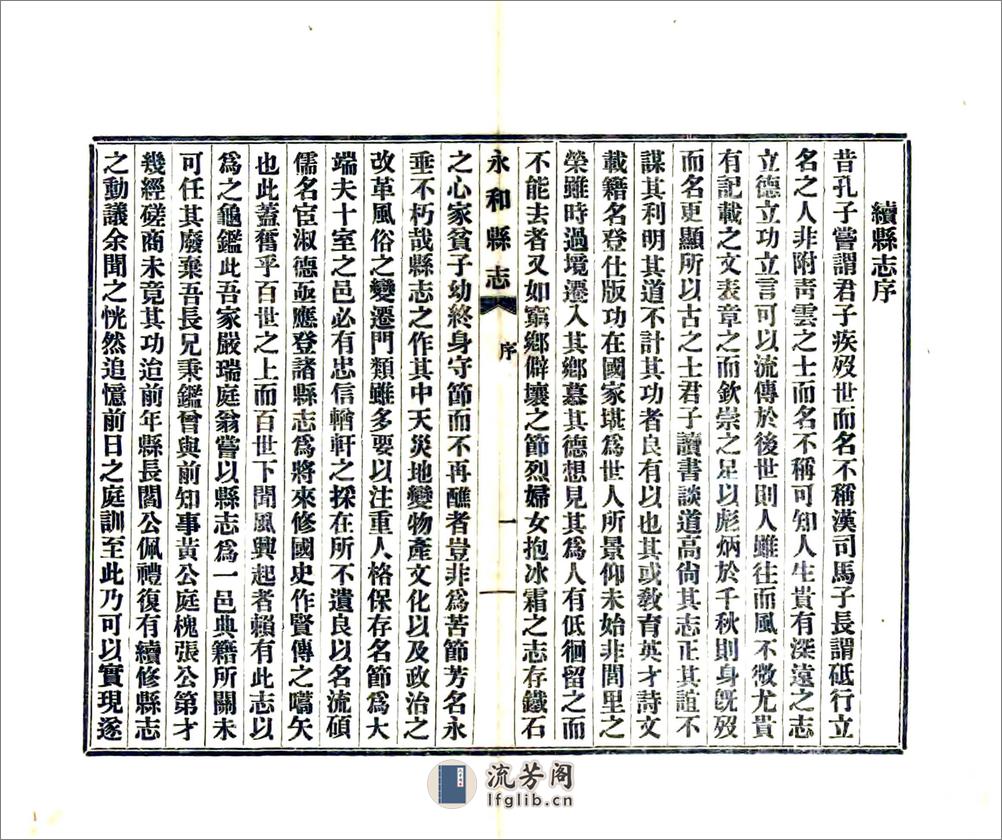 續縣志序
昔孔子嘗謂君子疾歿世而名不稱漢司馬子長謂砥行立
名之人非附靑雲之士而名不稱可知人生貴有深遠之志
立德立功立言可以流傳於後世則人雖往而風不微尤貴
有記載之文表章之而欽崇之足以彪炳於千秋則身旣歿
而名更顯所以古之士君子讀書談道高尙其志正其誼不
謀其利明其道不計其功者良有以也其或敎育英才詩文
載籍名登仕版功在國家堪爲世人所景仰未始非閭里之
榮雖時過境遷入其鄉慕其德想見其爲人有低徊留之而
不能去者又如窮鄉僻壤之節烈婦女抱冰霜之志存鐵石
永和縣志
序
一
之心家貧子幼終身守節而不再醮者豈非爲苦節芳名永
垂不朽哉縣志之作其中天災地變物產文化以及政治之
改革風俗之變遷門類雖多要以注重人格保存名節爲大
端夫十室之邑必有忠信輶軒之採在所不遺良以名流碩
儒名宦淑德亟應登諸縣志爲將來修國史作賢傳之嚆矢
也此蓋奮乎百世之上而百世下聞風興起者賴有此志以
爲之龜鑑此吾家嚴瑞庭翁嘗以縣志爲一邑典籍所關未
可任其廢棄吾長兄秉鑑曾與前知事黃公庭槐張公第才
幾經磋商未竟其功洎前年縣長閻公佩禮復有續修縣志
之動議余聞之恍然追憶前日之庭訓至此乃可以實現遂
流芳阁
lfglib.cn